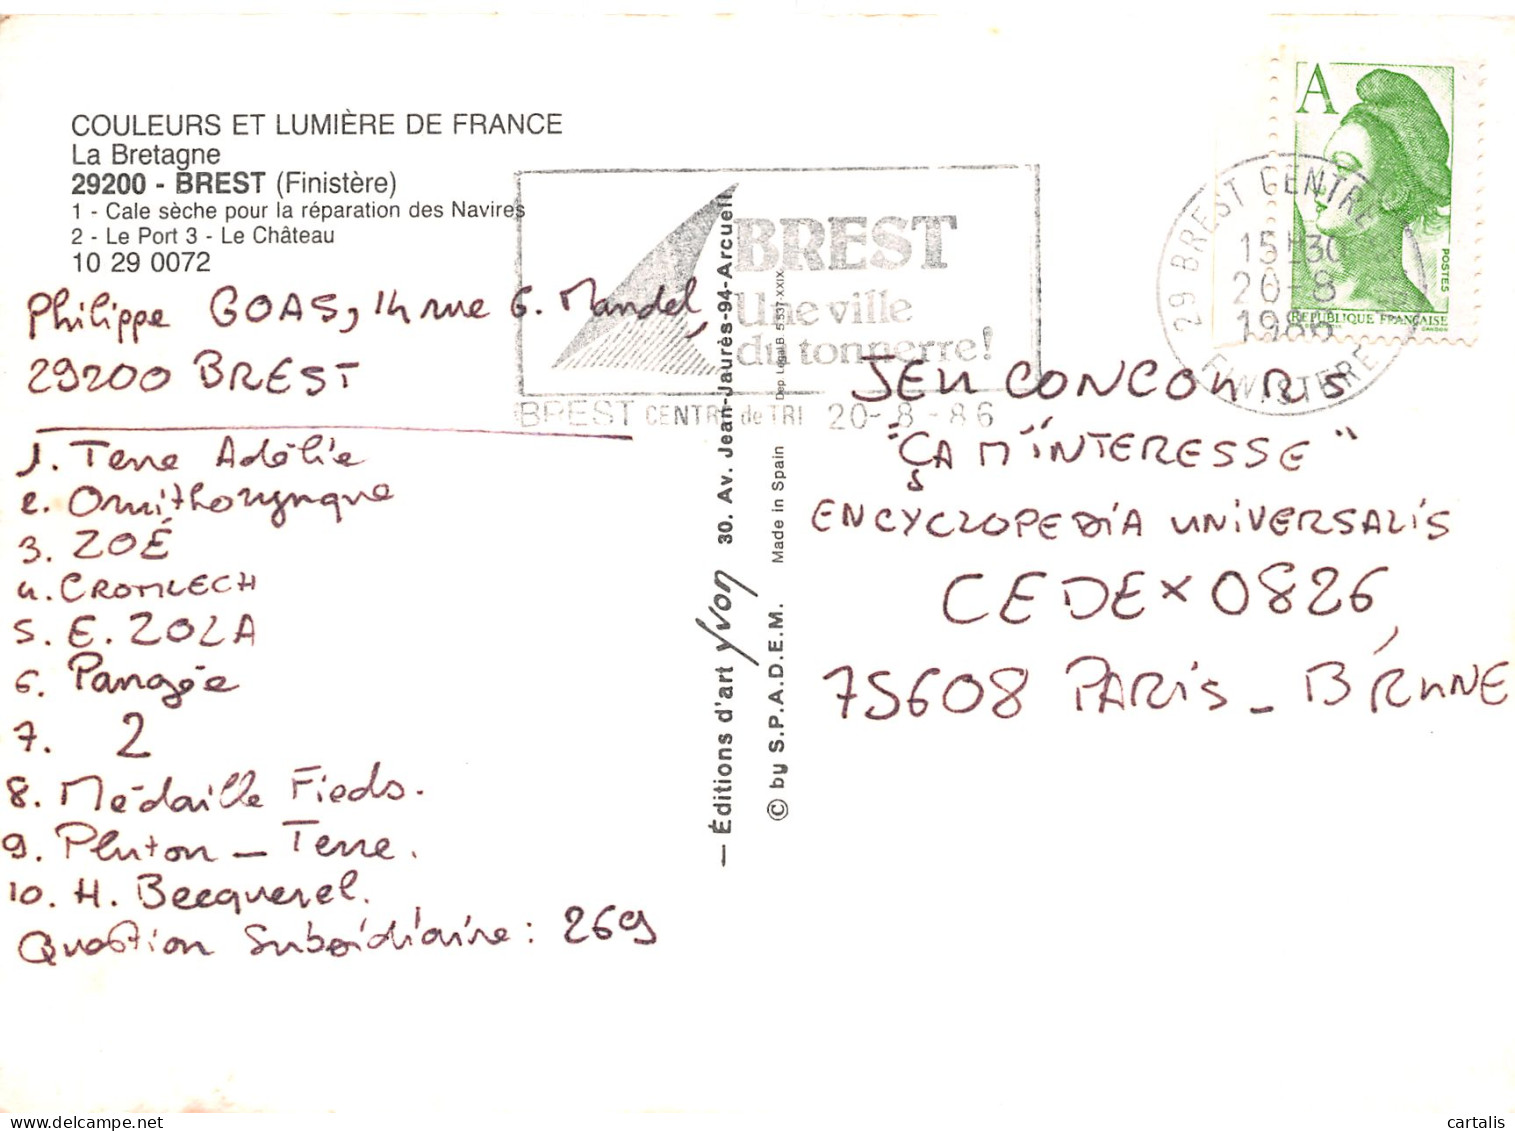 COULEURS ET LUMIÈRE DE FRANCE
La Bretagne
29200 - BREST (Finistère)
1 - Cale sèche pour la réparation des Navires
2 - Le Port 3 - Le Château
10 29 0072
Philippe GOAS, 14 rue G. Mandel,
29200 BREST
1. Terre Adélie
2. Ornithorynque
3. ZOÉ
4. CROMLECH
5. E. ZOLA
6. Pangée
7. 2
8. Médaille Fields.
9. Pluton - Terre.
10. H. Becquerel.
Question Subsidiaire : 269
BREST
Une ville
du tonnerre!
BREST CENTRE de TRI 20-8-86
— Éditions d'art Yvon 30. Av. Jean-Jaurès-94-Arcueil
© by S.P.A.D.E.M. Made in Spain Dep. Légal B. 5.537-XXIX
A
POSTES
REPUBLIQUE FRANÇAISE
29 BREST CENTRE
15H30
20-8
1986
FINISTERE
JEU CONCOURS
"ÇA M'INTERESSE"
ENCYCLOPEDIA UNIVERSALIS
CEDEX 0826,
75608 PARIS - BRUNE
cartalis